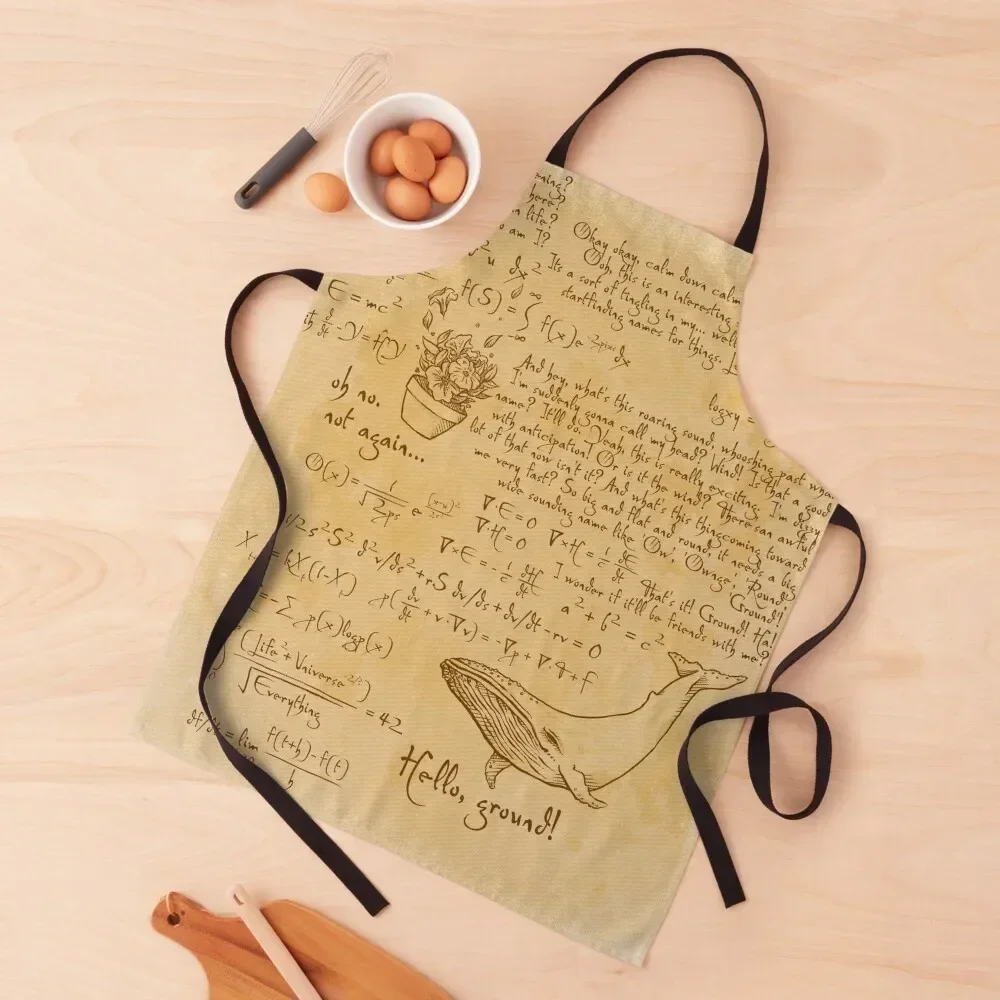 here?
life?
am I?
Okay okay, calm down calm
Ooh, this is an interesting
Its a sort of tingling in my... well
startfinding names for things.
dx 2
E = mc²
f(S) = ∫ ∞ f(x)e -2pixs dx
d/dt
oh no.
not again...
And hey, what's this roaring sound, whooshing past
I'm suddenly gonna call my head? Wind! Is that a good
name? It'll do. Yeah, this is really exciting. I'm dizzy
with anticipation! Or is it the wind? There san awful
lot of that now isn't it? And what's this thingcoming toward
me very fast? So big and flat and round, it needs a big
wide sounding name like 'Ow', 'Ownge', 'Round',
'Ground'!
That's it! Ground! Ha!
I wonder if it'll be friends with me?
logxy =
∇·E=0
∇·H=0
∇×E = -1/c dH/dt
∇×H = 1/c dE/dt
1/2s²S² d²v/ds² + rS dv/ds + dv/dt - rv = 0
a² + b² = c²
kX(1-X)
p(dv/dt + v·∇v) = -∇p + ∇·q + f
= -Σ p(x)logp(x)
(Life² + Universe 2/2)
√Everything = 42
df/dt = lim f(t+h)-f(t) / h
Hello, ground!